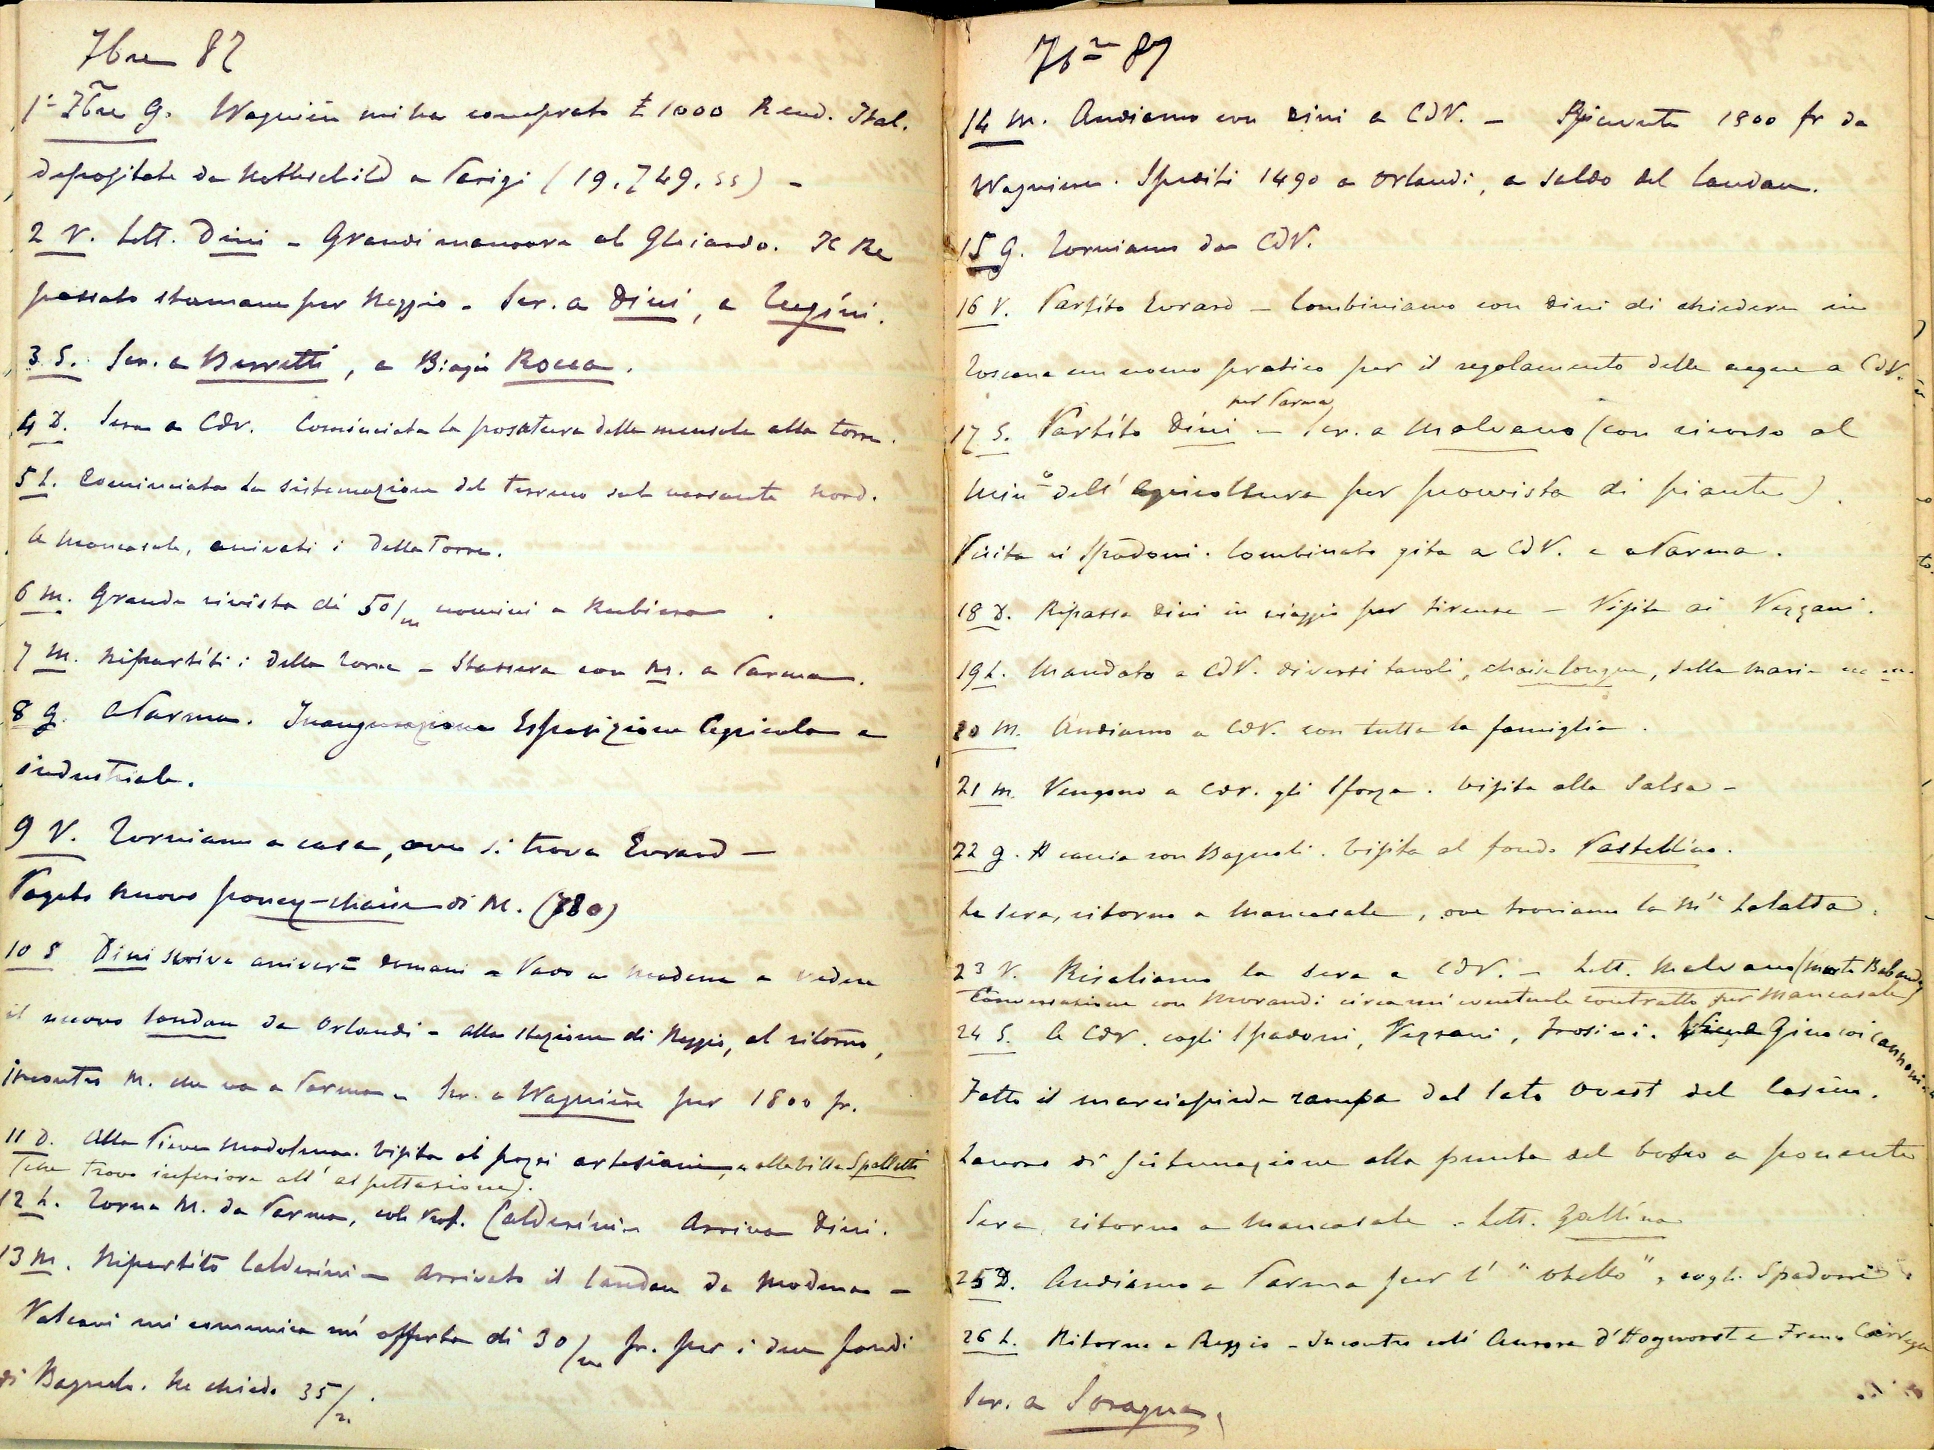 7bre 87
1° 7bre G. Wagnière mi ha comprato £ 1000 Rend. Ital.
depositate da Rothschild a Parigi (19.749,55) –
2 V. Lett. Dini – Grandi manovre al Ghiardo. Il Re
passato stamane per Reggio – Scr. a Dini, a
3 S. Scr. a Berretti, a Biagio Rocca.
4 D. Sera a CdV. Cominciata la posatura delle mensole alla torre.
5 L. Cominciata la sistemazione del terreno sul versante Nord.
A Mancasale, arrivati i Della Torre.
6 M. Grande rivista di 50/m uomini a Rubiera.
7 M. Ripartiti i Della Torre – Stassera con M. a Parma.
8 G. A Parma. Inaugurazione Esposizione Agricola e
industriale.
9 V. Torniamo a casa, ove si trova Evrard –
Pagato nuovo poney-chaise di M. (780)
10 S Dini scrive arriverà domani – Vado a Modena a vedere
il nuovo landau da Orlandi – Alla stazione di Reggio, al ritorno,
incontro M. che va a Parma – Scr. a Wagnière per 1800 fr.
11 D. Alla Pieve Modolena. Visita ai pozzi artesiani, e alla villa Spalletti
(che trovo inferiore all'aspettazione).
12 L. Torna M. da Parma, col Prof. Calderini – Arriva Dini.
13 M. Ripartito Calderini – Arrivato il landau da Modena –
Vulcani mi comunica un' offerta di 30/m fr. per i due fondi
di Bagnolo. Ne chiedo 35/m.
7bre 87
14 M. Andiamo con Dini a CdV. – Ricevute 1800 fr da
Wagnière. Spediti 1490 a Orlandi, a saldo del landau.
15 G. Torniamo da CdV.
16 V. Partito Evrard – Combiniamo con Dini di chiedere in
Toscana un uomo pratico per il regolamento delle acque a CdV.
per Parma
17 S. Partito Dini – Scr. a Malvano (con ricorso al
Min° dell' Agricoltura per provvista di piante).
Visita ai Spadoni. Combinato gita a CdV. e a Parma.
18 D. Ripassa Dini in viaggio per Firenze – Visita ai Vezzani.
19 L. Mandato a CdV. diversi tavoli, chaise longue, sella Maria
20 M. Andiamo a CdV. con tutta la famiglia.
21 M. Vengono a CdV. gli Sforza. Visita alla Salsa –
22 G. A caccia con Bagnoli. Visita al fondo Pastellino.
La sera, ritorno a Mancasale, ove troviamo la Mª Lalatta.
23 V. Risaliamo la sera a CdV. – Lett. Malvano (morte
Conversazione con Morandi circa un' eventuale contratto per Mancasale)
24 S. A CdV. cogli Spadoni, Vezzani, Frosini. Viene Gino coi cannoni
Fatto il marciapiede rampa dal lato Ovest del Casino.
Lavoro di sistemazione alla punta del bosco a ponente
Sera, ritorno a Mancasale – Lett. Gallina
25 D. Andiamo a Parma per l' "Otello", cogli Spadoni.
26 L. Ritorno a Reggio – Incontro coll' Aurora d'Hogwoost e Franc.
Scr. a Soragna.